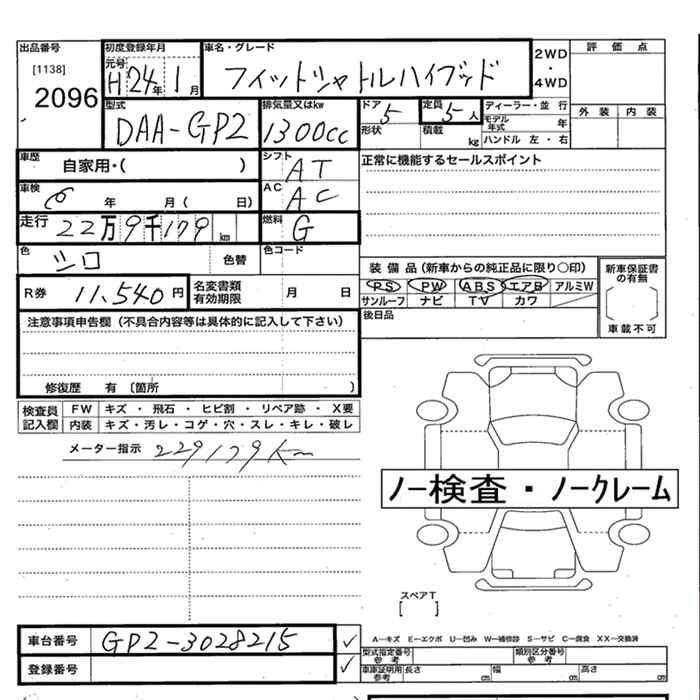 出品番号 初度登録年月 車名・グレード 2WD ・ 4WD 評価点
[1138] 元号 H24年1月 フィットシャトルハイブリッド
2096
型式 排気量又はkw ドア 定員 ディーラー・並行 外装 内装
DAA-GP2 1300cc 5 5人 モデル年式 年
形状 積載 kg ハンドル 左・右
車歴 自家用・( ) シフト AT 正常に機能するセールスポイント
車検 6年 月( 日) AC AC
走行 22万9千179km 燃料 G
色 シロ 色替 色コード
装備品(新車からの純正品に限り○印) 新車保証書の有無
R券 11,540円 名変書類有効期限 月 日 PS PW ABS エアB アルミW
サンルーフ ナビ TV カワ
車載不可
注意事項申告欄(不具合内容等は具体的に記入して下さい) 後日品
修復歴 有(箇所 )
検査員記入欄 FW キズ・飛石・ヒビ割・リペア跡・X要
内装 キズ・汚レ・コゲ・穴・スレ・キレ・破レ
メーター指示 229179km
ノー検査・ノークレーム
スペアT
[ ]
車台番号 GP2-3028215 ✓ A―キズ E―エクボ U―凹み W―補修跡 S―サビ C―腐食 XX―交換済
型式指定番号 参考 類別区分番号 参考
登録番号 ✓ 車庫証明用 参考 長さ cm 幅 cm 高さ cm